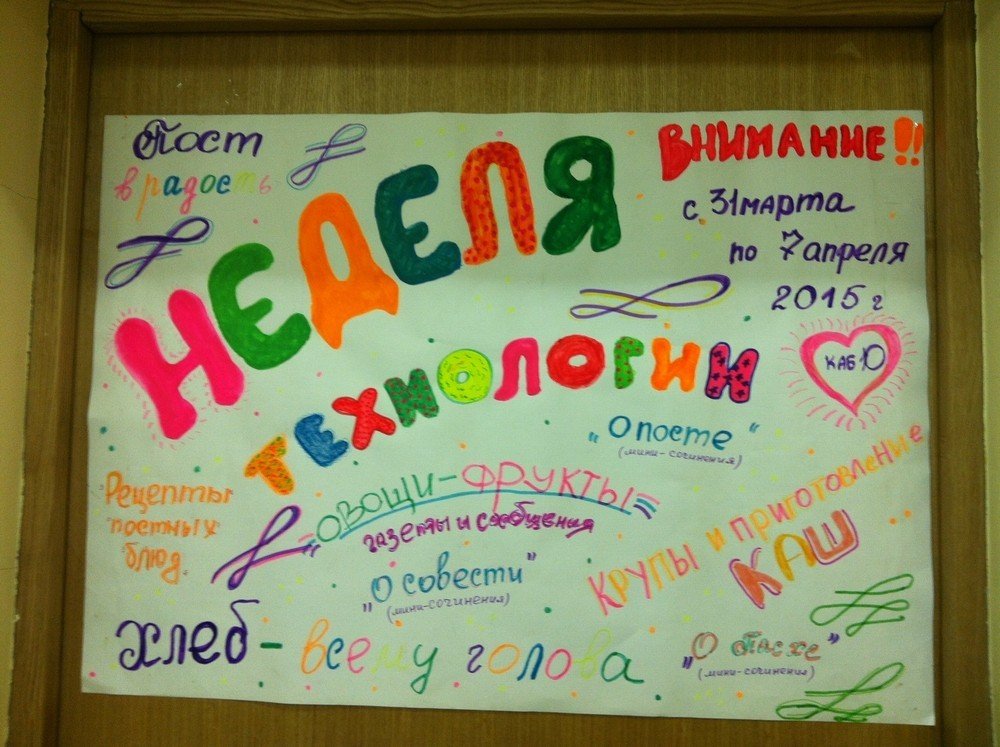 Пост
в радость
НЕДЕЛЯ
ТЕХНОЛОГИИ
ВНИМАНИЕ!!
с 31 марта
по 7 апреля
2015 г
КАБ 10
"О посте"
(мини-сочинения)
Рецепты
постных
блюд.
"ОВОЩИ-ФРУКТЫ"
газеты и сообщения
КРУПЫ и ПРИГОТОВЛЕНИЕ
КАШ...
"О совести"
(мини-сочинения)
Хлеб - всему голова
"О Пасхе"
(мини-сочинения)